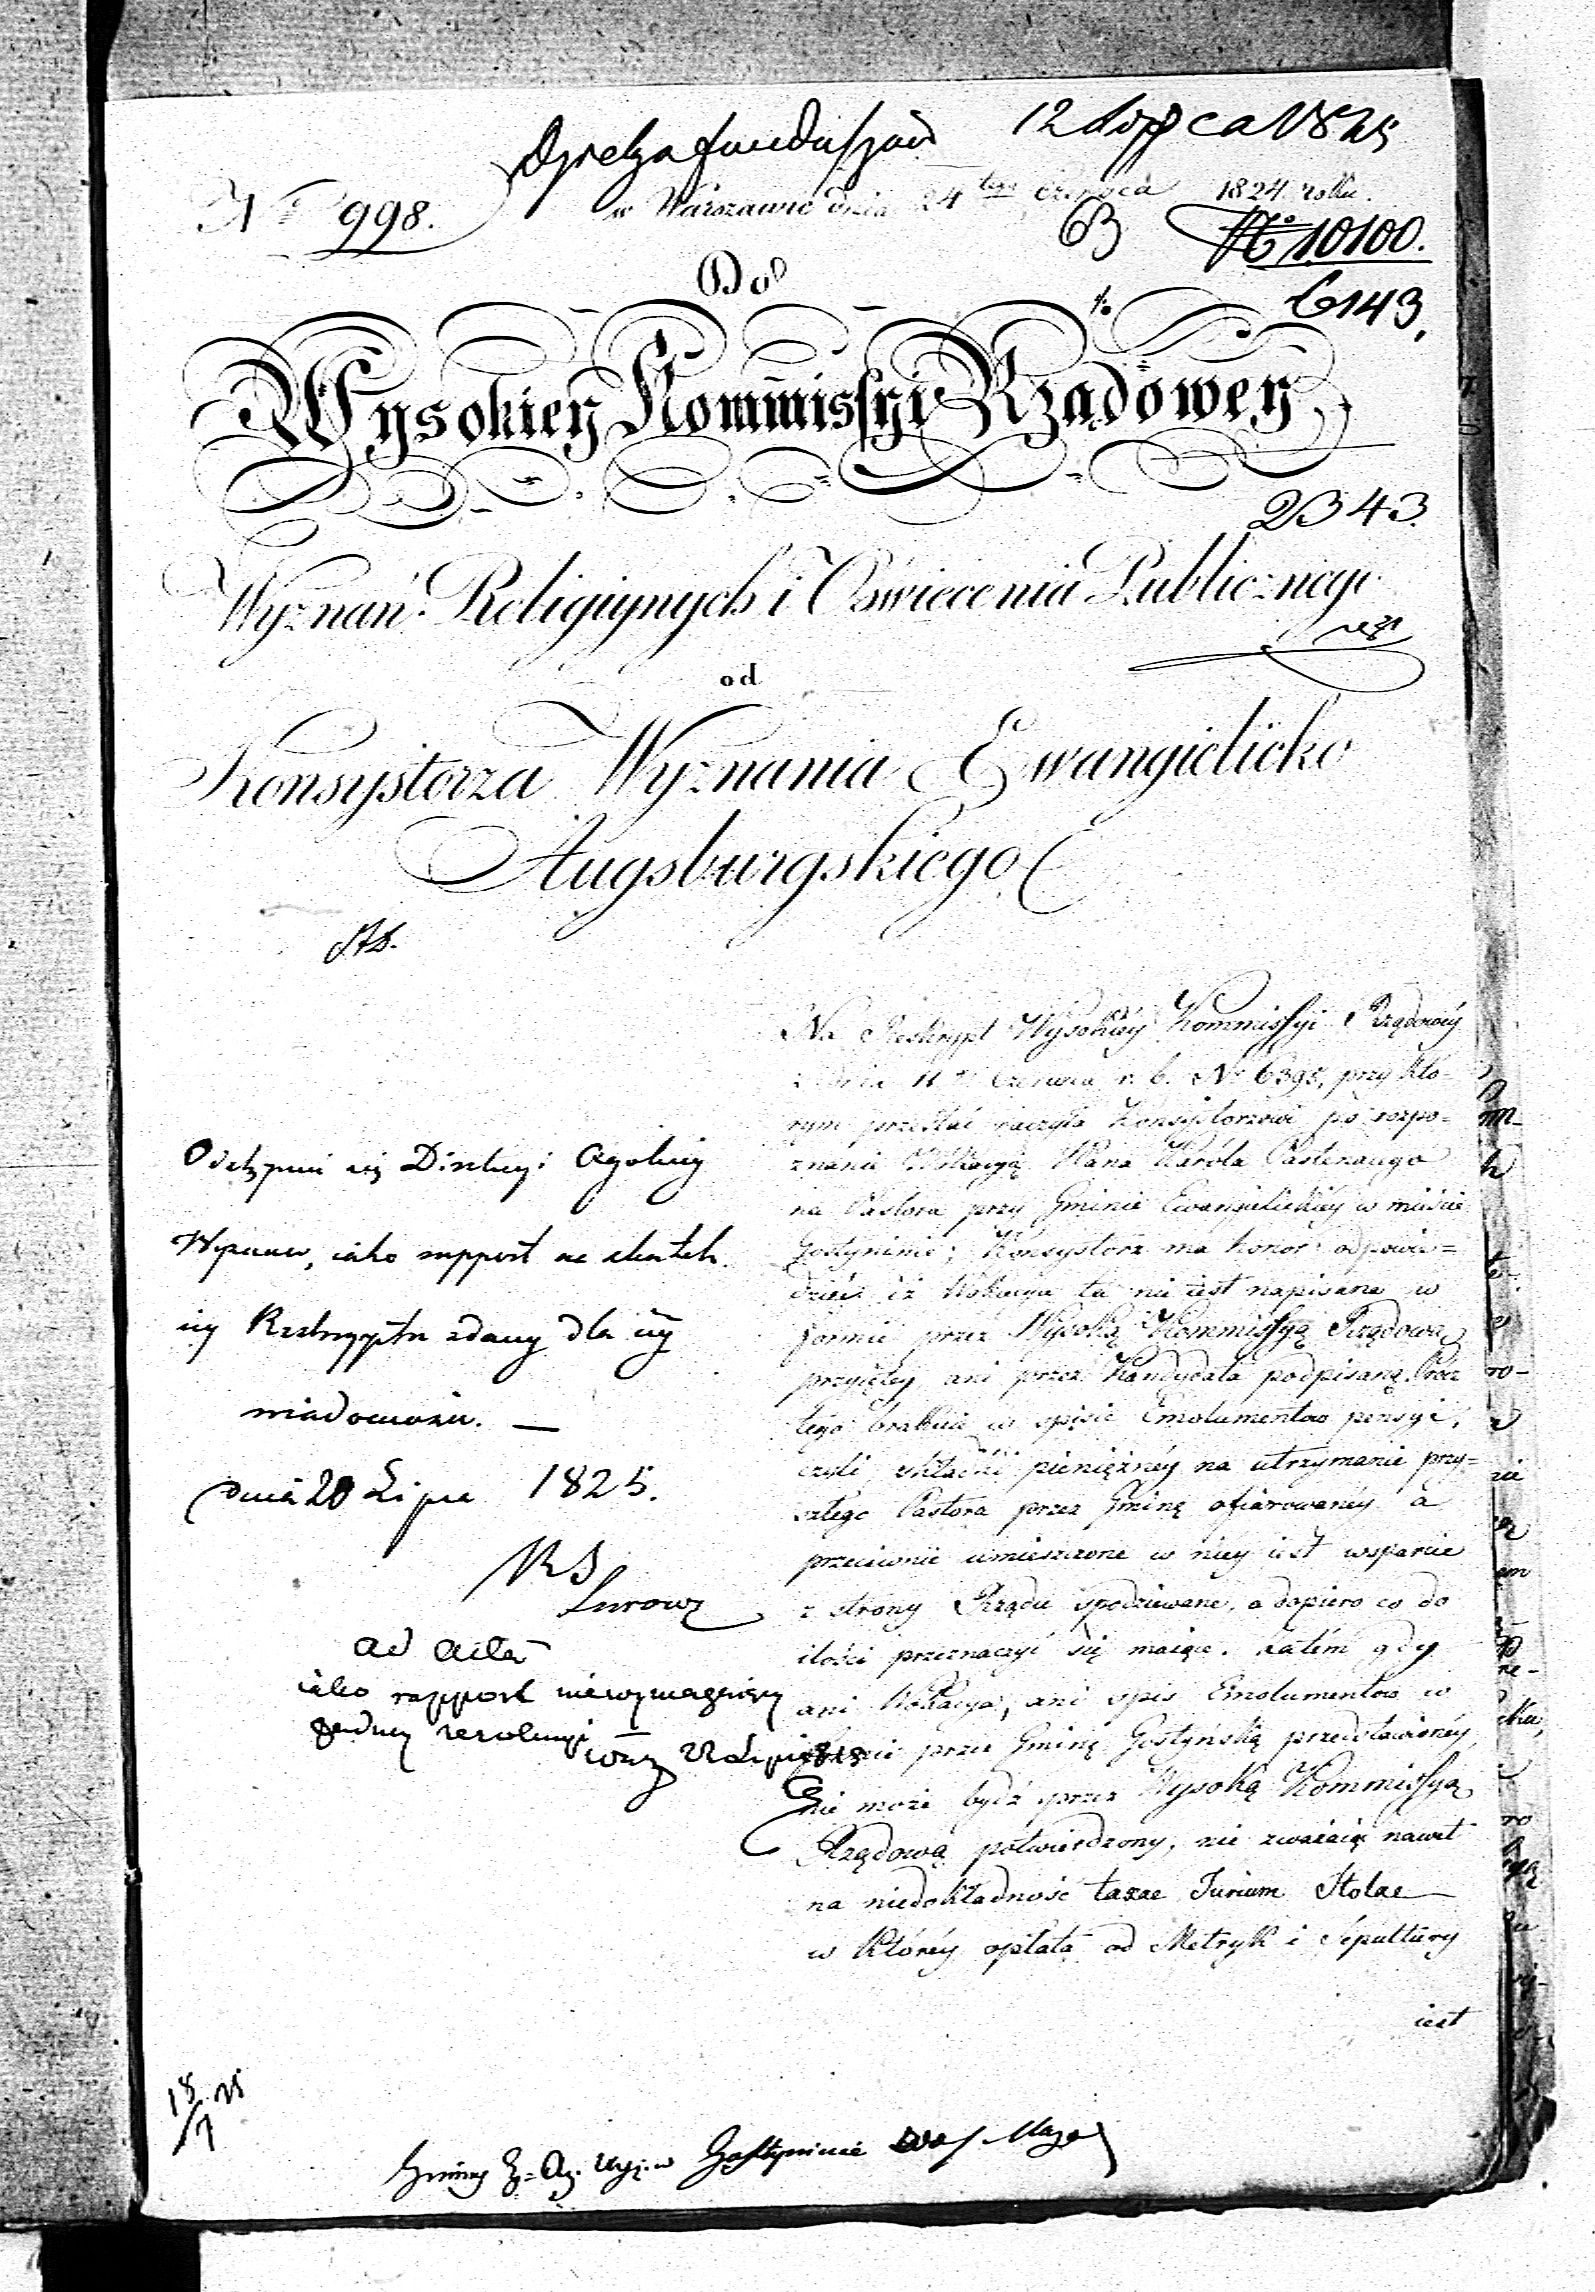 12 Lipca 1825
N 998.
w Warszawie dnia 24 Czerwca 1824 roku.
B № 10100.
Do
6143,
Wysokiey Kommissyi Rządowey
2343.
Wyznań Religiynych i Oswiecenia Publicznego
od
Konsystorza Wyznania Ewangielicko
Augsburgskiego
Na Reskrypt Wysokiéy Kommissyi Rządowéy
z dnia 11 Czerwca r. b. N° 6395, przy któ-
rym przesłać raczyła Konsystorzowi po rozpo-
znanie Wokacyą Karóla
na Pastora przy Gminie Ewangielickiéy w mieście
Gostyninie; Konsystorz ma honor odpowie=
dzieć iż Wokacya ta nie iest napisana w
formie przez Wysoką Kommissyą Rządową
przyiętéy ani przez Kandydata podpisaną. Prócz
tego brakuie w spisie Emolumentow pensyi,
czyli składki pieniężnéy na utrzymanie przy=
szłego Pastora przez Gminę ofiarowanéy a
przeciwnie umieszczone w niey iest wsparcie
z strony Rządu spodziewane, a dopiero co do
ilości przeznaczyć się maiące. Zatém gdy
ani Wokacya, ani spis Emolumentow w
przez Gminę Gostyńską przedstawionéy,
nie może bydź przez Wysoką Kommissyą
Rządową potwierdzony, nie zważaiąc nawet
na niedokładność taxae Jurium Stolae
w któréy opłata od Metryk i Sepultury
iest
się
iako rapport na skutek
Reskryptu zdany dla iéy
wiadomości. —
dnia 20 Lipca 1825.
ad acta
iako rapport niewymagaiący
żadney rezolucyi
18/7 25
Gminy w Gostyninie